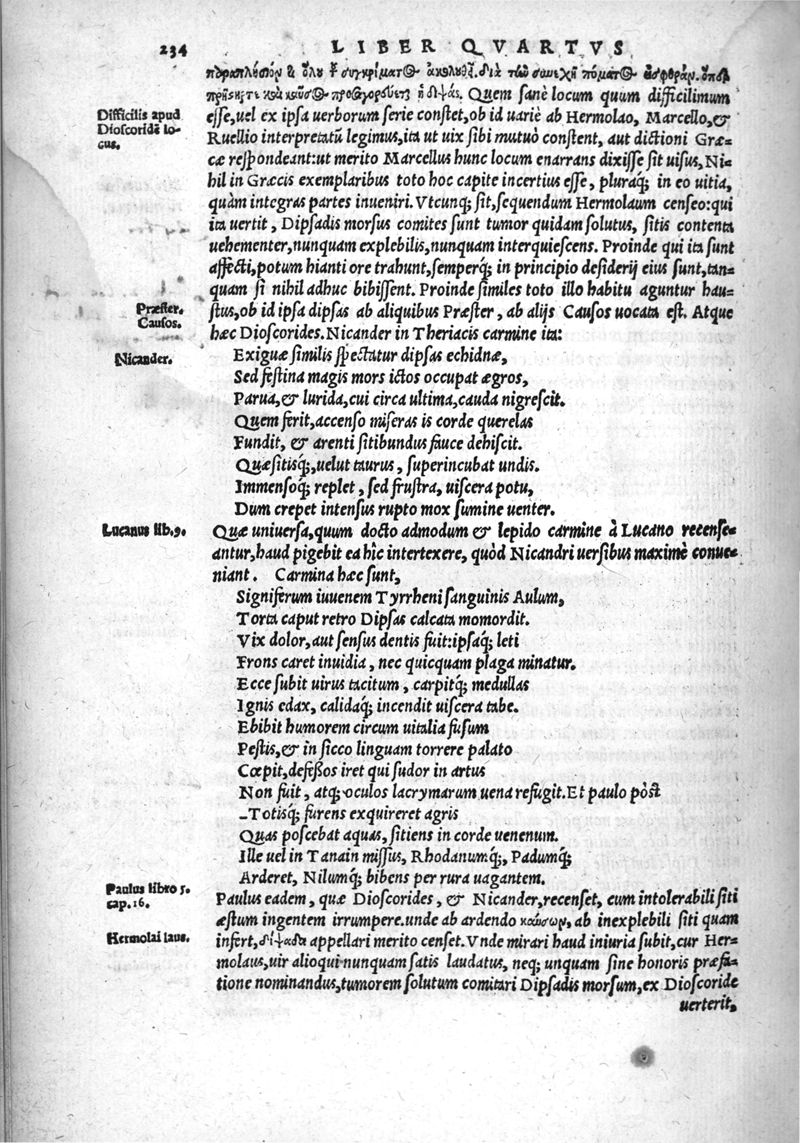 234 LIBER QVARTVS
Quem sanè locum quum difficilimum
Difficilis apud
Dioscoridē lo-
cus.
esse,uel ex ipsa uerborum serie constet,ob id uariè ab Hermolao, Marcello,&
Ruellio interpretatũ legimus,ita ut uix sibi mutuò constent, aut dictioni Græ-
cæ respondeant:ut merito Marcellus hunc locum enarrans dixisse sit uisus,Ni-
hil in Græcis exemplaribus toto hoc capite incertius esse, pluraq; in eo uitia,
quàm integras partes inueniri. Vtcunq; sit,sequendum Hermolaum censeo:qui
ita uertit, Dipsadis morsus comites sunt tumor quidam solutus, sitis contenta
uehementer,nunquam explebilis,nunquam interquiescens. Proinde qui ita sunt
affecti,potum hianti ore trahunt,semperq; in principio desiderij eius sunt,tan-
quam si nihil adhuc bibissent. Proinde similes toto illo habitu aguntur hau-
Præster.
Causos.
stus,ob id ipsa dipsas ab aliquibus Præster, ab alijs Causos uocata est. Atque
hæc Dioscorides.Nicander in Theriacis carmine ita:
Nicander.
Exiguæ similis spectatur dipsas echidnæ,
Sed festina magis mors ictos occupat ægros,
Parua,& lurida,cui circa ultima,cauda nigrescit.
Quem ferit,accenso miseras is corde querelas
Fundit, & arenti sitibundus fauce dehiscit.
Quæsitisq;,uelut taurus, superincubat undis.
Immensoq; replet, sed frustra, uiscera potu,
Dum crepet intensus rupto mox sumine uenter.
Lucanus lib.9.
Quæ uniuersa,quum docto admodum & lepido carmine à Lucano recense-
antur,haud pigebit ea hîc intertexere, quòd Nicandri uersibus maximè conue-
niant. Carmina hæc sunt,
Signiferum iuuenem Tyrrheni sanguinis Aulum,
Torta caput retro Dipsas calcata momordit.
Vix dolor,aut sensus dentis fuit:ipsaq; leti
Frons caret inuidia, nec quicquam plaga minatur.
Ecce subit uirus tacitum, carpitq; medullas
Ignis edax, calidaq; incendit uiscera tabe.
Ebibit humorem circum uitalia fusum
Pestis,& in sicco linguam torrere palato
Cœpit,defessos iret qui sudor in artus
Non fuit, atq; oculos lacrymarum uena refugit.Et paulo pòst
-Totisq; furens exquireret agris
Quas poscebat aquas, sitiens in corde uenenum.
Ille uel in Tanain missus, Rhodanumq;, Padumq;
Arderet, Nilumq; bibens per rura uagantem.
Paulus libro 5.
cap.16.
Paulus eadem, quæ Dioscorides, & Nicander,recenset, cum intolerabili siti
æstum ingentem irrumpere.unde ab ardendo καύσωρ, ab inexplebili siti quam
Hermolai laus.
infert,διψάδα appellari merito censet.Vnde mirari haud iniuria subit,cur Her-
molaus,uir alioqui nunquam satis laudatus, neq; unquam sine honoris præfa-
tione nominandus,tumorem solutum comitari Dipsadis morsum,ex Dioscoride
uerterit,